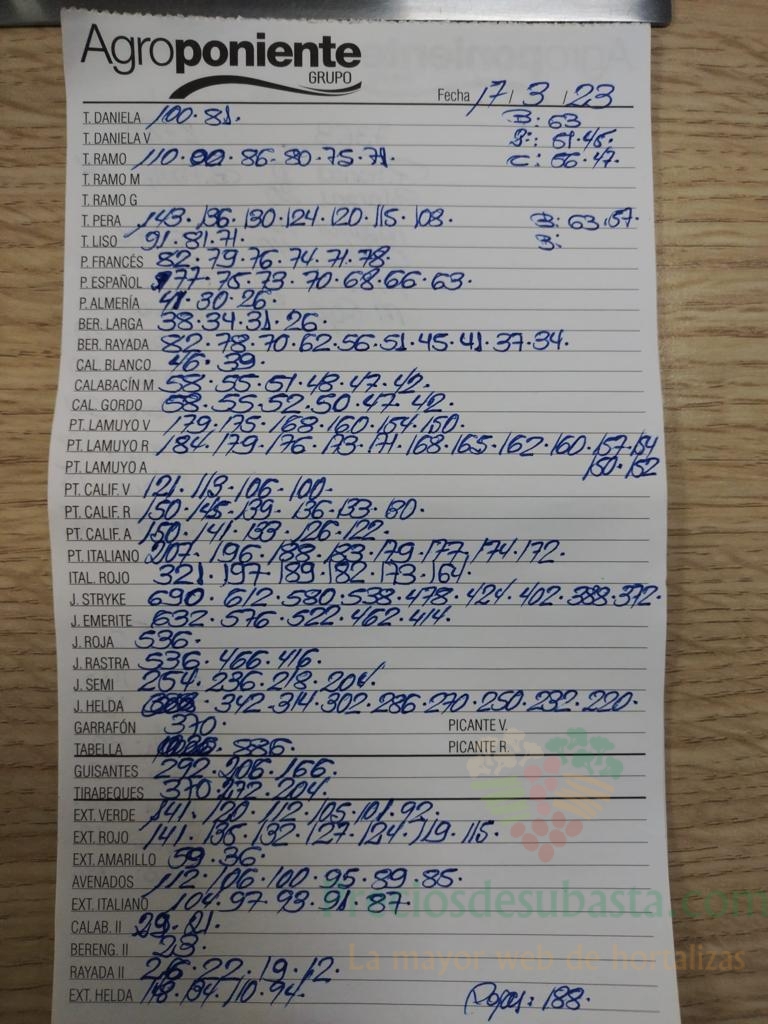 Agroponiente
GRUPO
Fecha 17/3/23
T. DANIELA 100. 81. B: 63
T. DANIELA V B: 61.45.
T. RAMO 110. 90. 86. 80. 75. 71. C: 66.47.
T. RAMO M
T. RAMO G
T. PERA 143. 136. 130. 124. 120. 115. 108. B: 63.57.
T. LISO 91. 81. 71. B:
P. FRANCÉS 82. 79. 76. 74. 71. 78.
P. ESPAÑOL 77. 75. 73. 70. 68. 66. 63.
P. ALMERÍA 41. 30. 26.
BER. LARGA 38. 34. 31. 26.
BER. RAYADA 82. 78. 70. 62. 56. 51. 45. 41. 37. 34.
CAL. BLANCO 46. 39.
CALABACÍN M 58. 55. 51. 48. 47. 42.
CAL. GORDO 58. 55. 52. 50. 47. 42.
PT. LAMUYO V 179. 175. 168. 160. 154. 150.
PT. LAMUYO R 184. 179. 176. 173. 171. 168. 165. 162. 160. 157. 154
PT. LAMUYO A 150. 152
PT. CALIF. V 121. 113. 106. 100.
PT. CALIF. R 150. 145. 139. 136. 133. 130.
PT. CALIF. A 150. 141. 133. 126. 122.
PT. ITALIANO 207. 196. 188. 183. 179. 177. 174. 172.
ITAL. ROJO 321. 197. 189. 182. 173. 164.
J. STRYKE 690. 612. 580. 538. 478. 424. 402. 388. 372.
J. EMERITE 632. 576. 522. 462. 414.
J. ROJA 536.
J. RASTRA 536. 466. 416.
J. SEMI 254. 236. 218. 204.
J. HELDA 342. 314. 302. 286. 270. 250. 232. 220.
GARRAFÓN 370. PICANTE V.
TABELLA 886. PICANTE R.
GUISANTES 292. 206. 166.
TIRABEQUES 370. 272. 204.
EXT. VERDE 141. 120. 112. 105. 101. 92.
EXT. ROJO 141. 135. 132. 127. 124. 119. 115.
EXT. AMARILLO 59. 36.
AVENADOS 112. 106. 100. 95. 89. 85.
EXT. ITALIANO 104. 97. 93. 91. 87.
Preciosdesubasta.com
CALAB. II 29. 21.
BERENG. II 23.
La mayor web de hortalizas
RAYADA II 26. 22. 19. 12.
EXT. HELDA 148. 134. 110. 94. Rojas: 188.